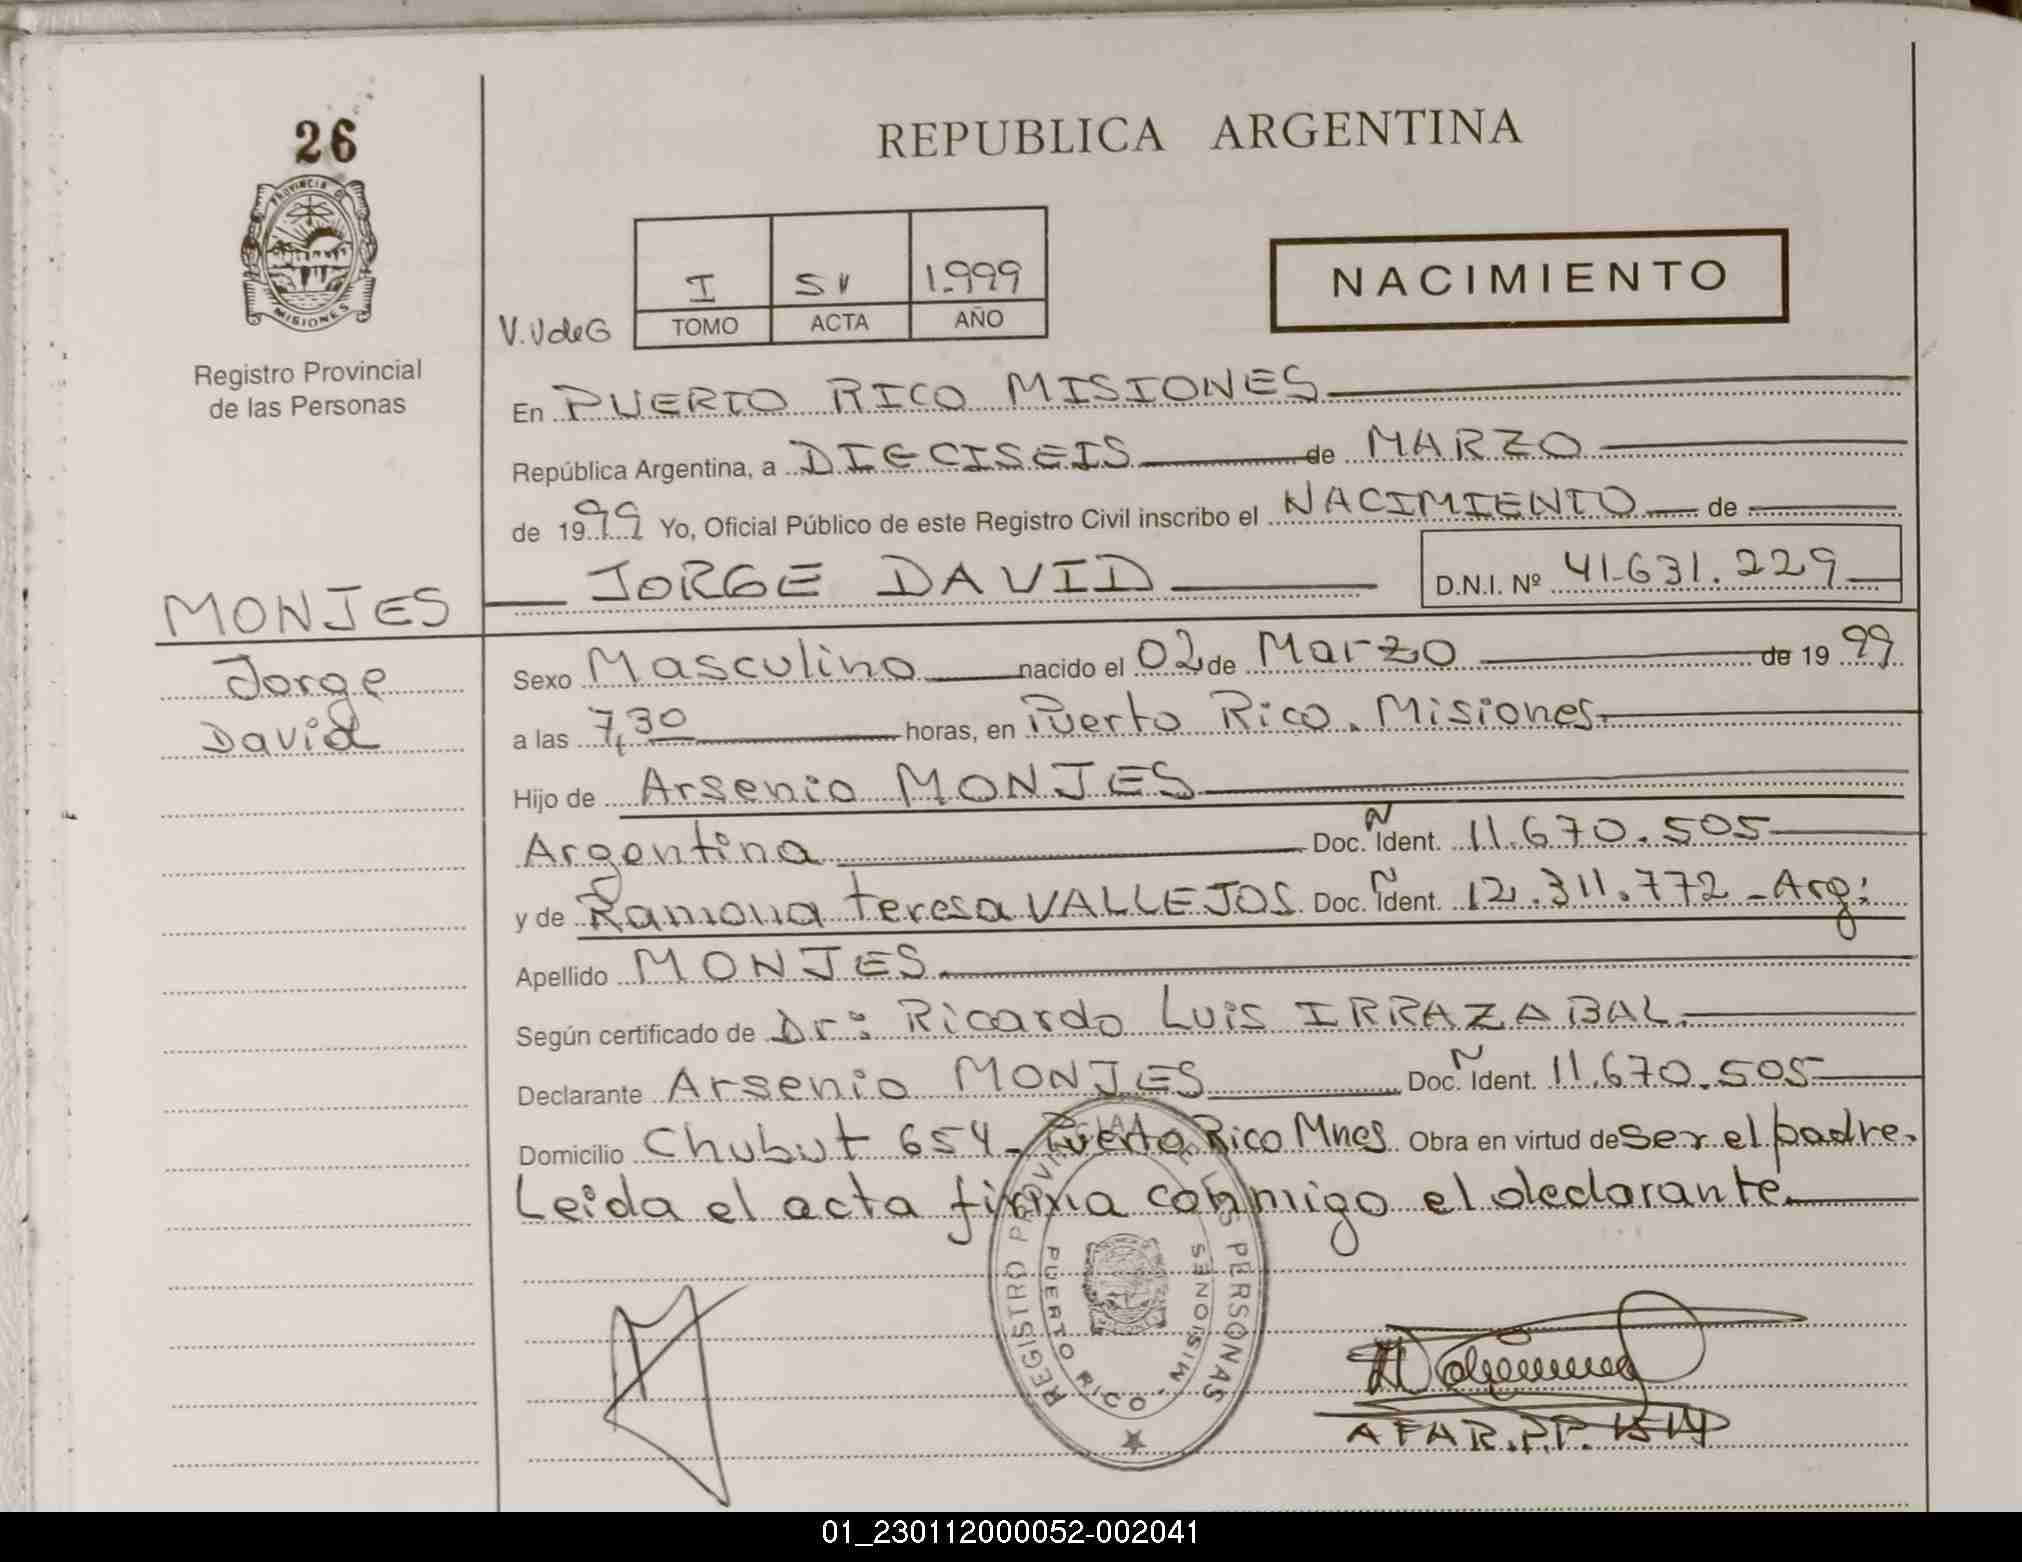 26
PROVINCIA D
MISIONES
Registro Provincial
de las Personas
MONJES
Jorge
David
REPUBLICA ARGENTINA
NACIMIENTO
V.VdeG
I 51 1.999
TOMO ACTA AÑO
En PUERTO RICO MISIONES
República Argentina, a DIECISEIS de MARZO
de 1999 Yo, Oficial Público de este Registro Civil inscribo el NACIMIENTO de
JORGE DAVID D.N.I. Nº 41.631.229
Sexo Masculino nacido el 02 de Marzo de 1999
a las 7,30 horas, en Puerto Rico. Misiones
Hijo de Arsenio MONJES
Argentina Doc. Ident. 11.670.505
y de Ramona teresa VALLEJOS Doc. Ident. 12.311.772 - Arg:
Apellido MONJES
Según certificado de Dr: Ricardo Luis IRRAZABAL.
Declarante Arsenio MONJES Doc. Ident. 11.670.505
Domicilio Chubut 654 - Puerto Rico Mnes Obra en virtud de ser el padre.
Leida el acta firma conmigo el declarante
REGISTRO PROVINCIAL DE LAS PERSONAS
PUERTO RICO - MISIONES
01_230112000052-002041